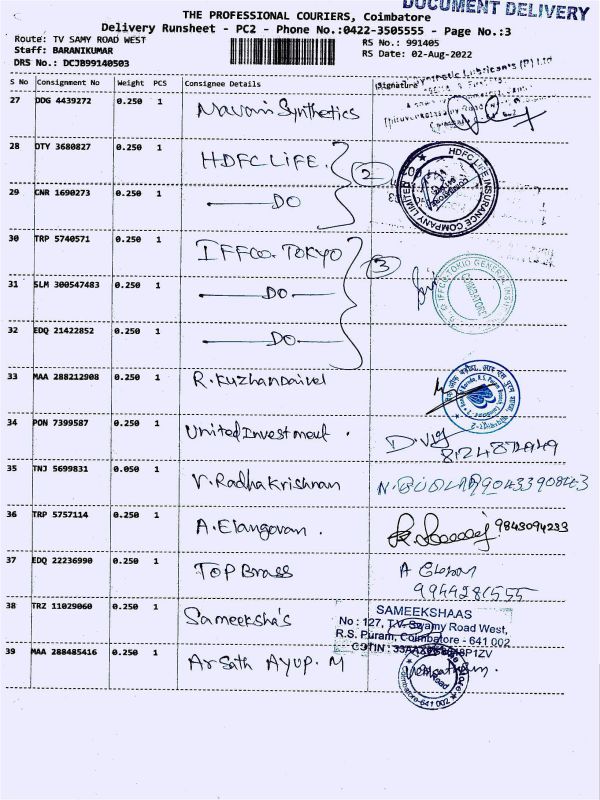 DOCUMENT DELIVERY
THE PROFESSIONAL COURIERS, Coimbatore
Delivery Runsheet - PC2 - Phone No.:0422-3505555 - Page No.:3
Route: TV SAMY ROAD WEST
RS No.: 991405
Staff: BARANIKUMAR
RS Date: 02-Aug-2022
DRS No.: DCJB99140503
S No Consignment No Weight PCS Consignee Details Signature
27 DDG 4439272 0.250 1 Navani Synthetics
28 DTY 3680827 0.250 1 HDFC LIFE. 2
HDFC LIFE INSURANCE COMPANY LIMITED
29 CNR 1690273 0.250 1 DO
30 TRP 5740571 0.250 1 IFFCO. TOKYO 3
IFFCO TOKIO GENERAL INS
COIMBATORE
31 SLM 300547483 0.250 1 DO
32 EDQ 21422852 0.250 1 DO
33 MAA 288212908 0.250 1 R. Kuzhandaivel
34 PON 7399587 0.250 1 United Investment .
35 TNJ 5699831 0.050 1 V. Radha Krishnan 9043390843
36 TRP 5757114 0.250 1 A. Elangovan. 9843094233
37 EDQ 22236990 0.250 1 TOP Brass
9944281555
38 TRZ 11029060 0.250 1 Sameeksha's
SAMEEKSHAAS
No : 127, T.V. Swamy Road West,
R.S. Puram, Coimbatore - 641 002
39 MAA 288485416 0.250 1 Ar Sath AYUP. M
Coimbatore-641 002